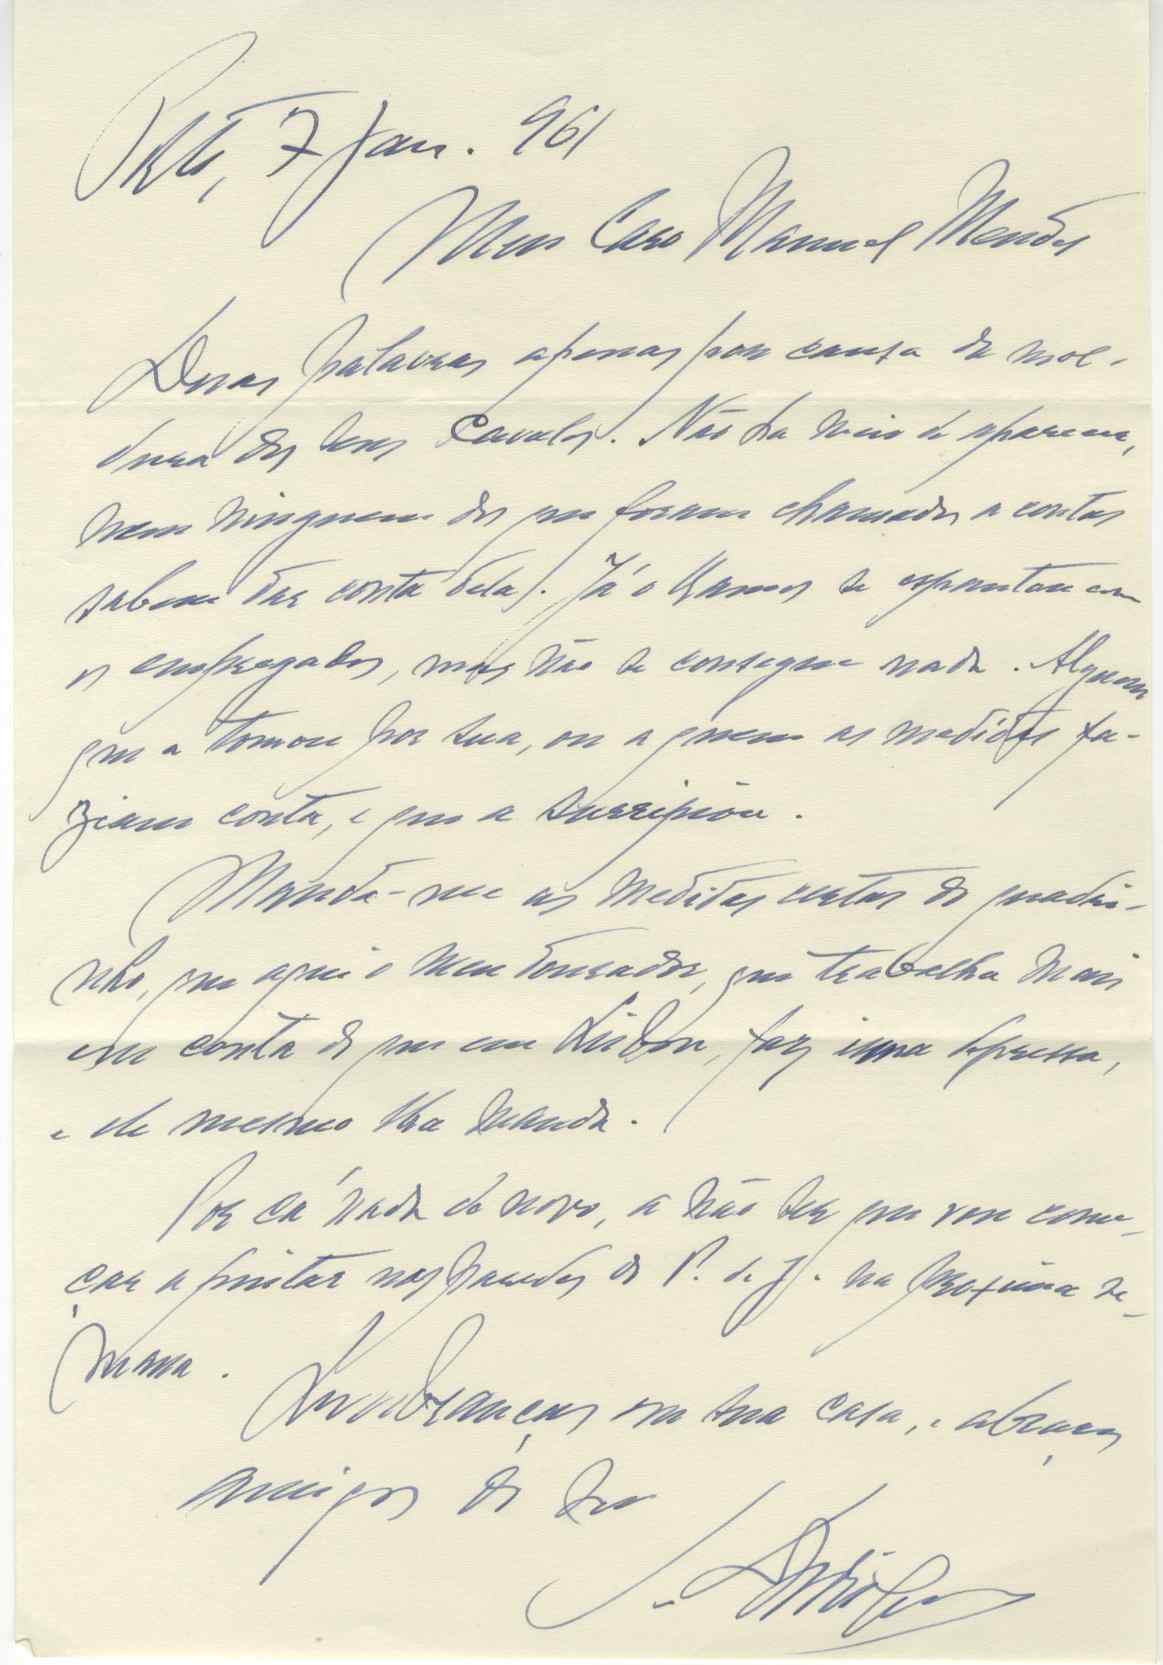 Porto, 7 Jan. 961
Meu Caro Manuel Mendes
Duas palavras apenas por causa da mol-
dura dos seus Cavalos. Não ha meio de aparecer,
nem ninguem dos que foram chamados a contas
sabem dar conta dela. Já o Ramos se espantou com
os empregados, mas não se consegue nada. Alguem
que a tomou por sua, ou a quem as medidas fa-
ziam conta, e que a surripiou.
Manda-me as medidas certas do quadri-
nho, que aqui o meu dourador, que trabalha mais
em conta do que em Lisboa, faz uma depressa,
e ele mesmo lha manda.
Por cá nada de novo, a não ser que vou come-
çar a pintar nas paredes do P. de J. na proxima se-
mana.
Lembranças em sua casa, e abraços
amigos do seu